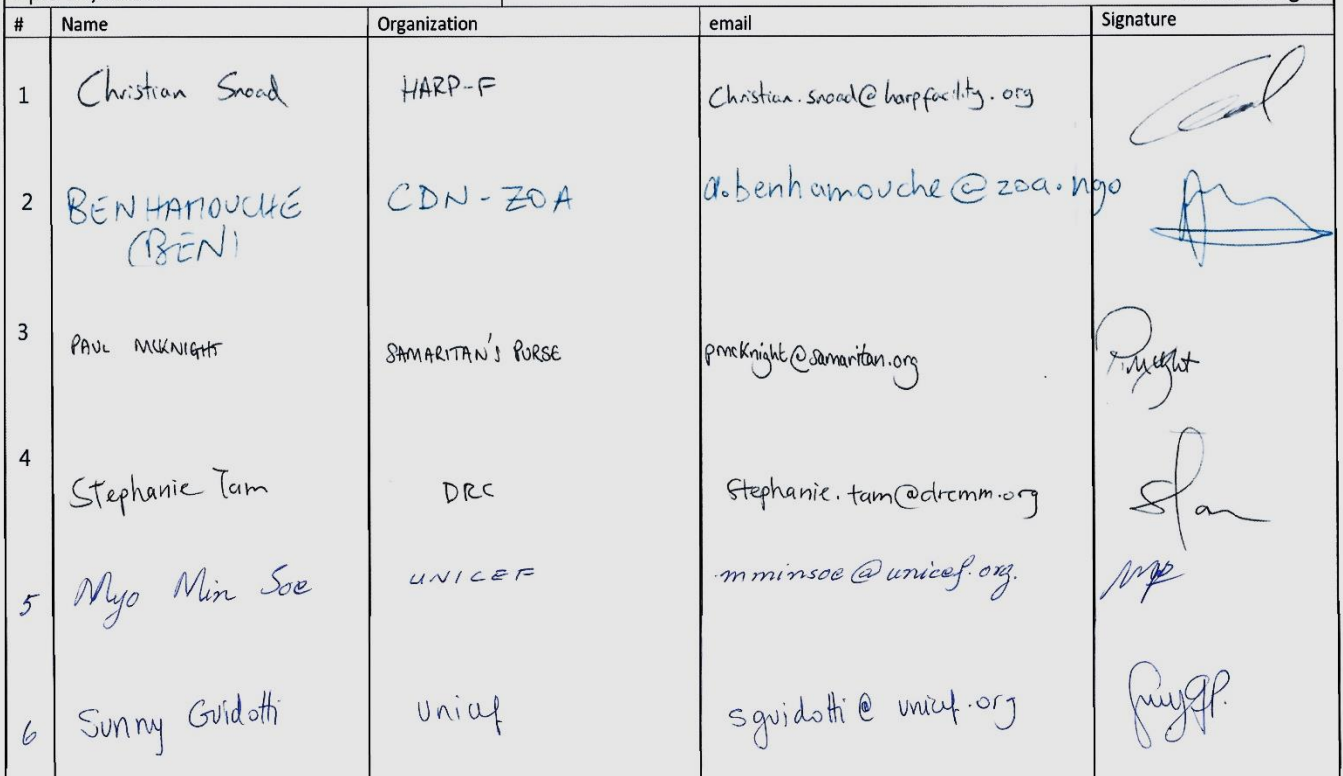 # Name Organization email Signature
1 Christian Snoad HARP-F Christian.snoad@harpfacility.org
2 BENHAMOUCHE CDN-ZOA a.benhamouche@zoa.ngo
(BEN)
3 PAUL MCKNIGHT SAMARITAN'S PURSE pmcKnight@samaritan.org
4 Stephanie Tam DRC Stephanie.tam@drcmm.org
5 Myo Min Soe UNICEF mminsoe@unicef.org.
6 Sunny Guidotti Unicef sguidotti@unicef.org